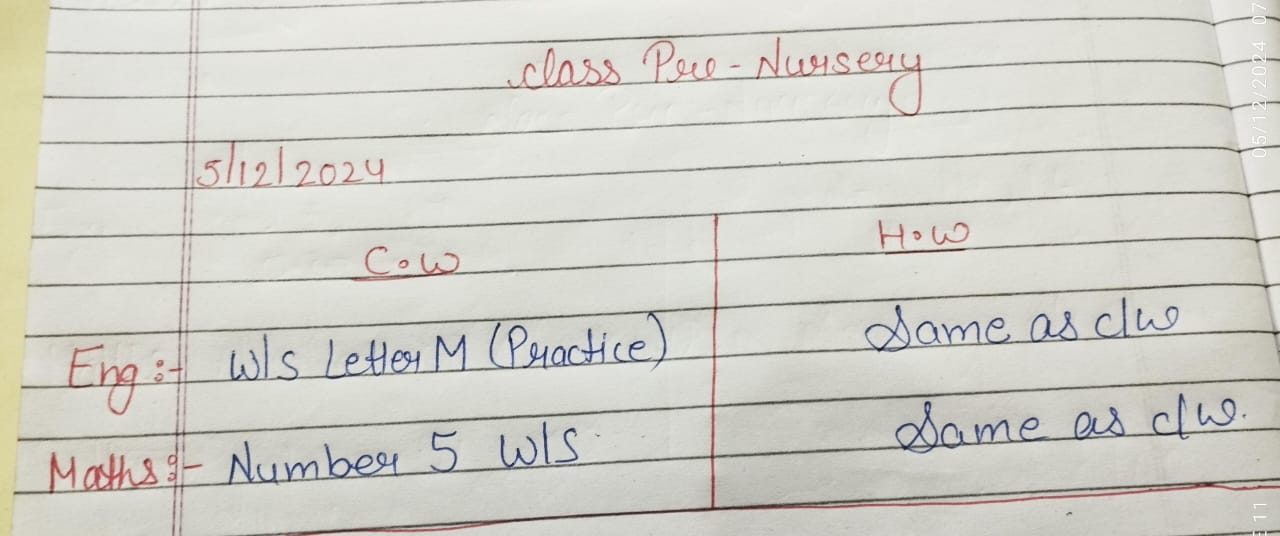 class Pre-Nursery
5/12/2024
C.W
H.W
Eng:- W/S Letter M (Practice)
Same as c/w
Maths:- Number 5 W/S.
Same as c/w.
05/12/2024 07